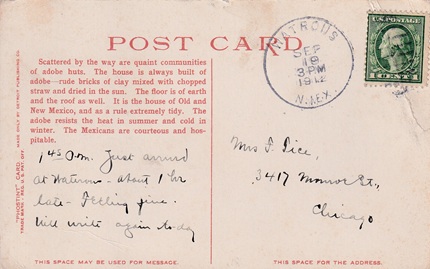 POST CARD
Scattered by the way are quaint communities
of adobe huts. The house is always built of
adobe—rude bricks of clay mixed with chopped
straw and dried in the sun. The floor is of earth
and the roof as well. It is the house of Old and
New Mexico, and as a rule extremely tidy. The
adobe resists the heat in summer and cold in
winter. The Mexicans are courteous and hos-
pitable.
"PHOSTINT" CARD
TRADE MARK. REG. U. S. PAT. OFF.
MADE ONLY BY DETROIT PUBLISHING CO.
1 45 P.m. Just arrived
at Watrous - about 1 hr
late - Feeling fine.
Will write again to-day
THIS SPACE MAY BE USED FOR MESSAGE.
WATROUS
SEP
19
3PM
1912
N.MEX.
U.S. POSTAGE
1 CENT 1
Mrs F. Pice,
3417 Monroe St.,
Chicago
THIS SPACE IS FOR THE ADDRESS.